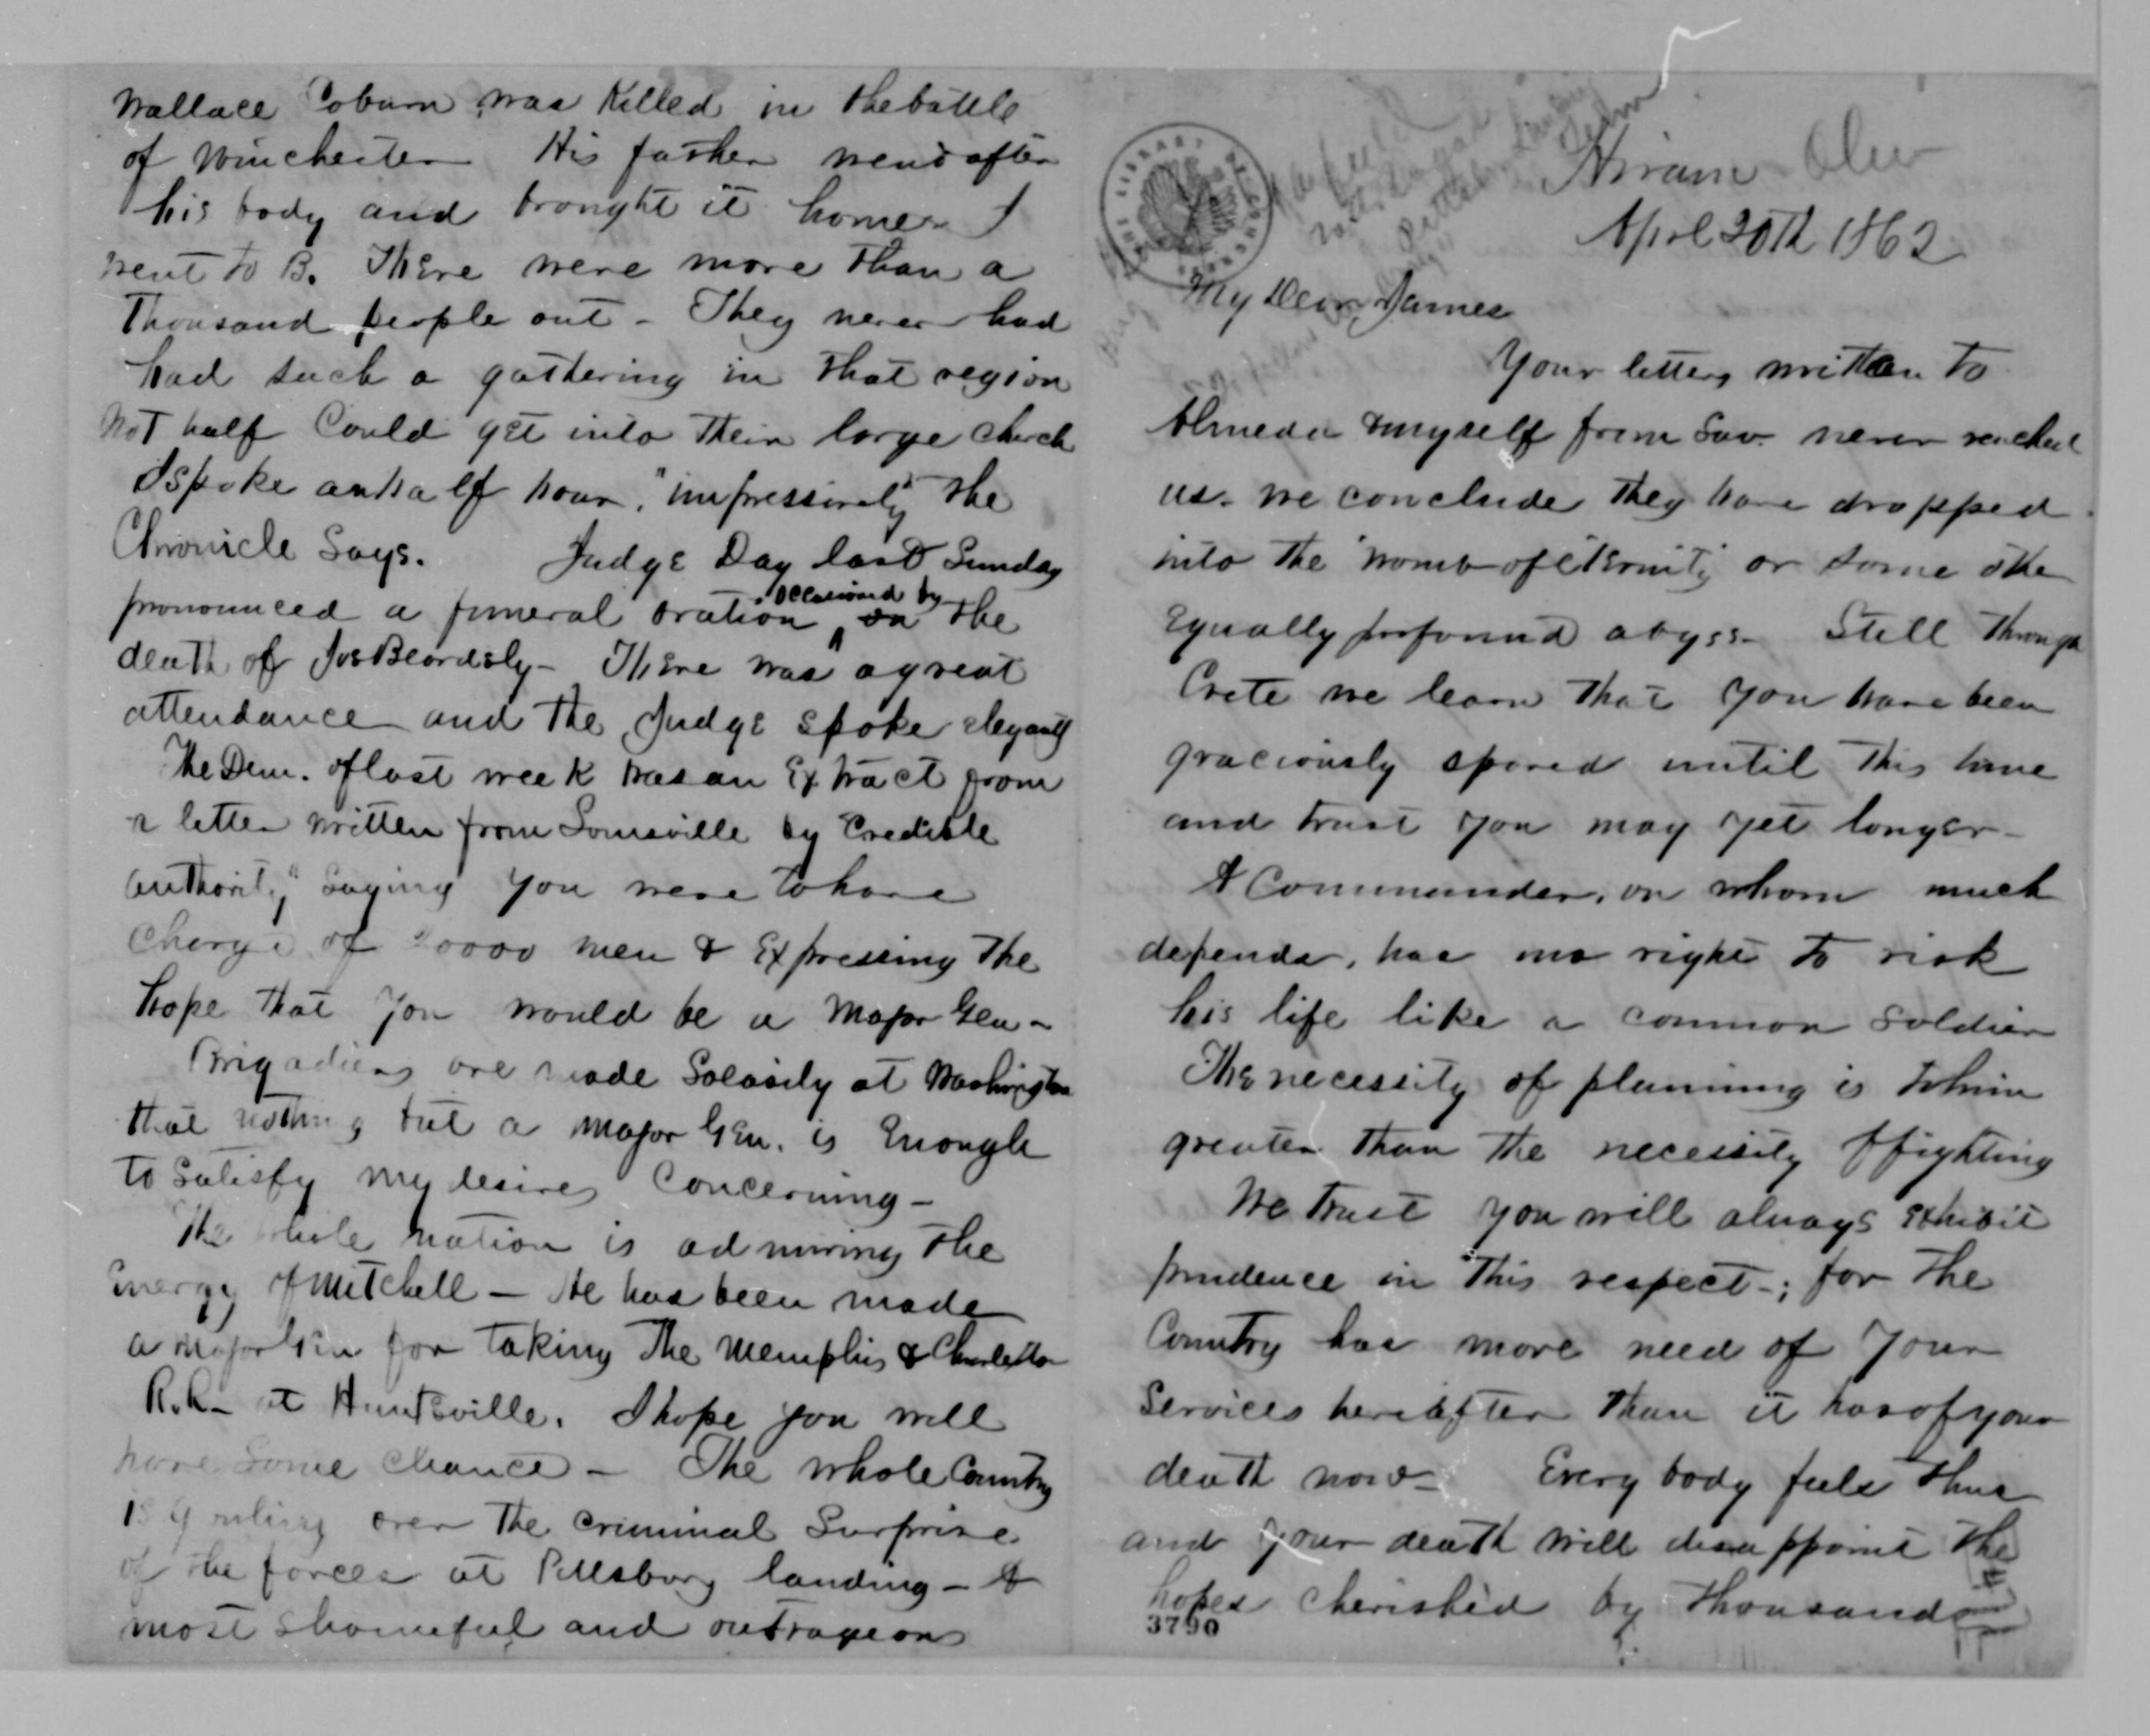 Hiram Ohio
April 20th 1862
My Dear James
Your letters written to
Almeda & myself from Sav. never reached
us. we conclude they have dropped
into the "womb of eternity" or some othe
Equally profound abyss - Still through
Crete we learn that you have been
graciously spared until this time
and trust you may yet longer -
A Commander, on whom much
depends, has no right to risk
his life like a common soldier
The necessity of planning is to him
greater than the necessity of fighting
We trust you will always exhibit
prudence in this respect -; for the
Country has more need of your
Services hereafter than it has of your
death now - Every body feels thus
and your death will disappoint the
hopes cherished by thousands
3790
Wallace Coburn was Killed in the battle
of Winchester His father went after
his body and brought it home - I
went to B. There were more than a
Thousand people out - They never had
had such a gathering in that region
Not half Could get into their large church
I spoke an half hour, "impressively" the
Chronicle Says. Judge Day last Sunday
pronounced a funeral oration occasioned by on the
death of Jos Beardsly - There was a great
attendance and the Judge spoke elegantly
The Dem. of last week has an Extract from
a letter written from Louisville by Credible
authority," saying you were to have
Charge of 20000 men & Expressing the
hope that you would be a Major Gen -
Brigadiers are made So easily at Washington
that nothing but a Major Gen. is Enough
to satisfy my desires Concerning -
The whole nation is admiring the
Energy of Mitchell - He has been made
a Major Gen for taking the Memphis & Charleston
R.R - at Huntsville. I hope you will
have some chance - The whole Country
is over the criminal Surprise
of the forces at Pittsburg landing - A
most shameful and outrageous